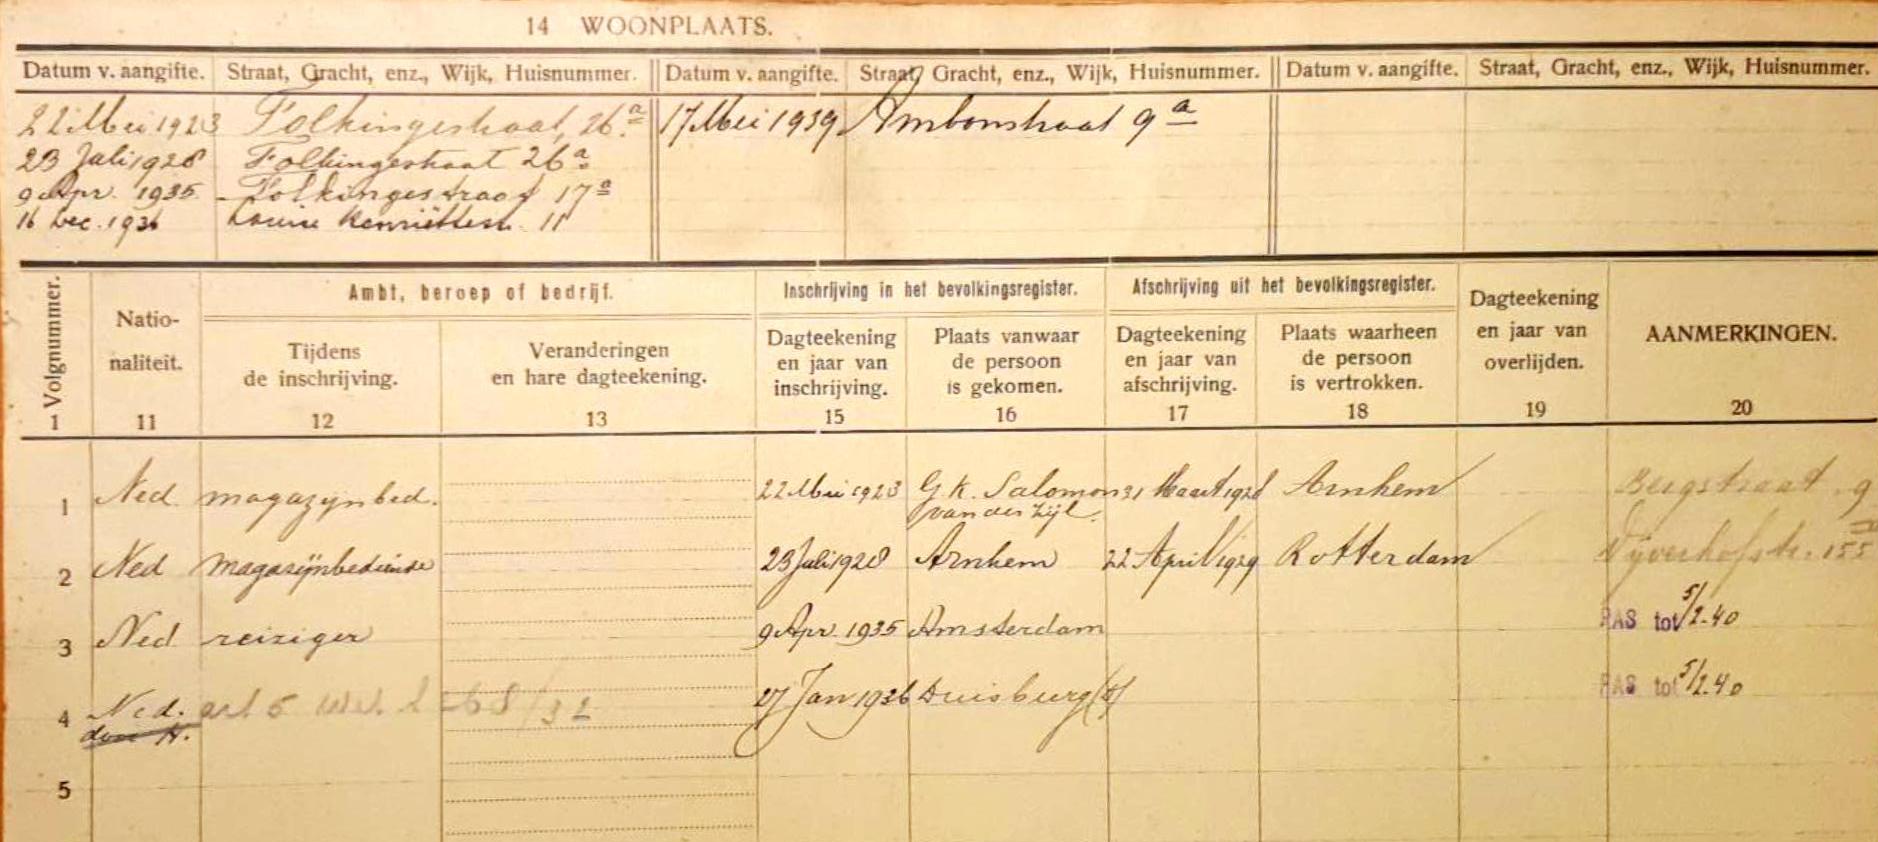 14 WOONPLAATS.
Datum v. aangifte. Straat, Gracht, enz., Wijk, Huisnummer. Datum v. aangifte. Straat, Gracht, enz., Wijk, Huisnummer. Datum v. aangifte. Straat, Gracht, enz., Wijk, Huisnummer.
22 Mei 1923 Folkingestraat, 26a. 17 Mei 1939 Ambonstraat 9a
23 Juli 1928 Folkingestraat 26a
9 Apr. 1935 Folkingestraat 17a
16 Dec. 1936 Louise Henriëttestr. 11
Volgnummer. Natio- Ambt, beroep of bedrijf. Inschrijving in het bevolkingsregister. Afschrijving uit het bevolkingsregister. Dagteekening AANMERKINGEN.
naliteit. Tijdens Veranderingen Dagteekening Plaats vanwaar Dagteekening Plaats waarheen en jaar van
de inschrijving. en hare dagteekening. en jaar van de persoon en jaar van de persoon overlijden.
inschrijving. is gekomen. afschrijving. is vertrokken.
1 11 12 13 15 16 17 18 19 20
1 Ned. magazijnbed. 22 Mei 1923 G.K. Salomon 31 Maart 1928 Arnhem Bergstraat 9
van der Zijl.
2 Ned magazijnbediende 23 Juli 1928 Arnhem 22 April 1929 Rotterdam 155
3 Ned. reiziger 9 Apr. 1935 Amsterdam PAS tot 5/2.40
4 Ned. art 5 wet 268/32 27 Jan 1936 Duisburg (D) PAS tot 5/2.40
door H.
5